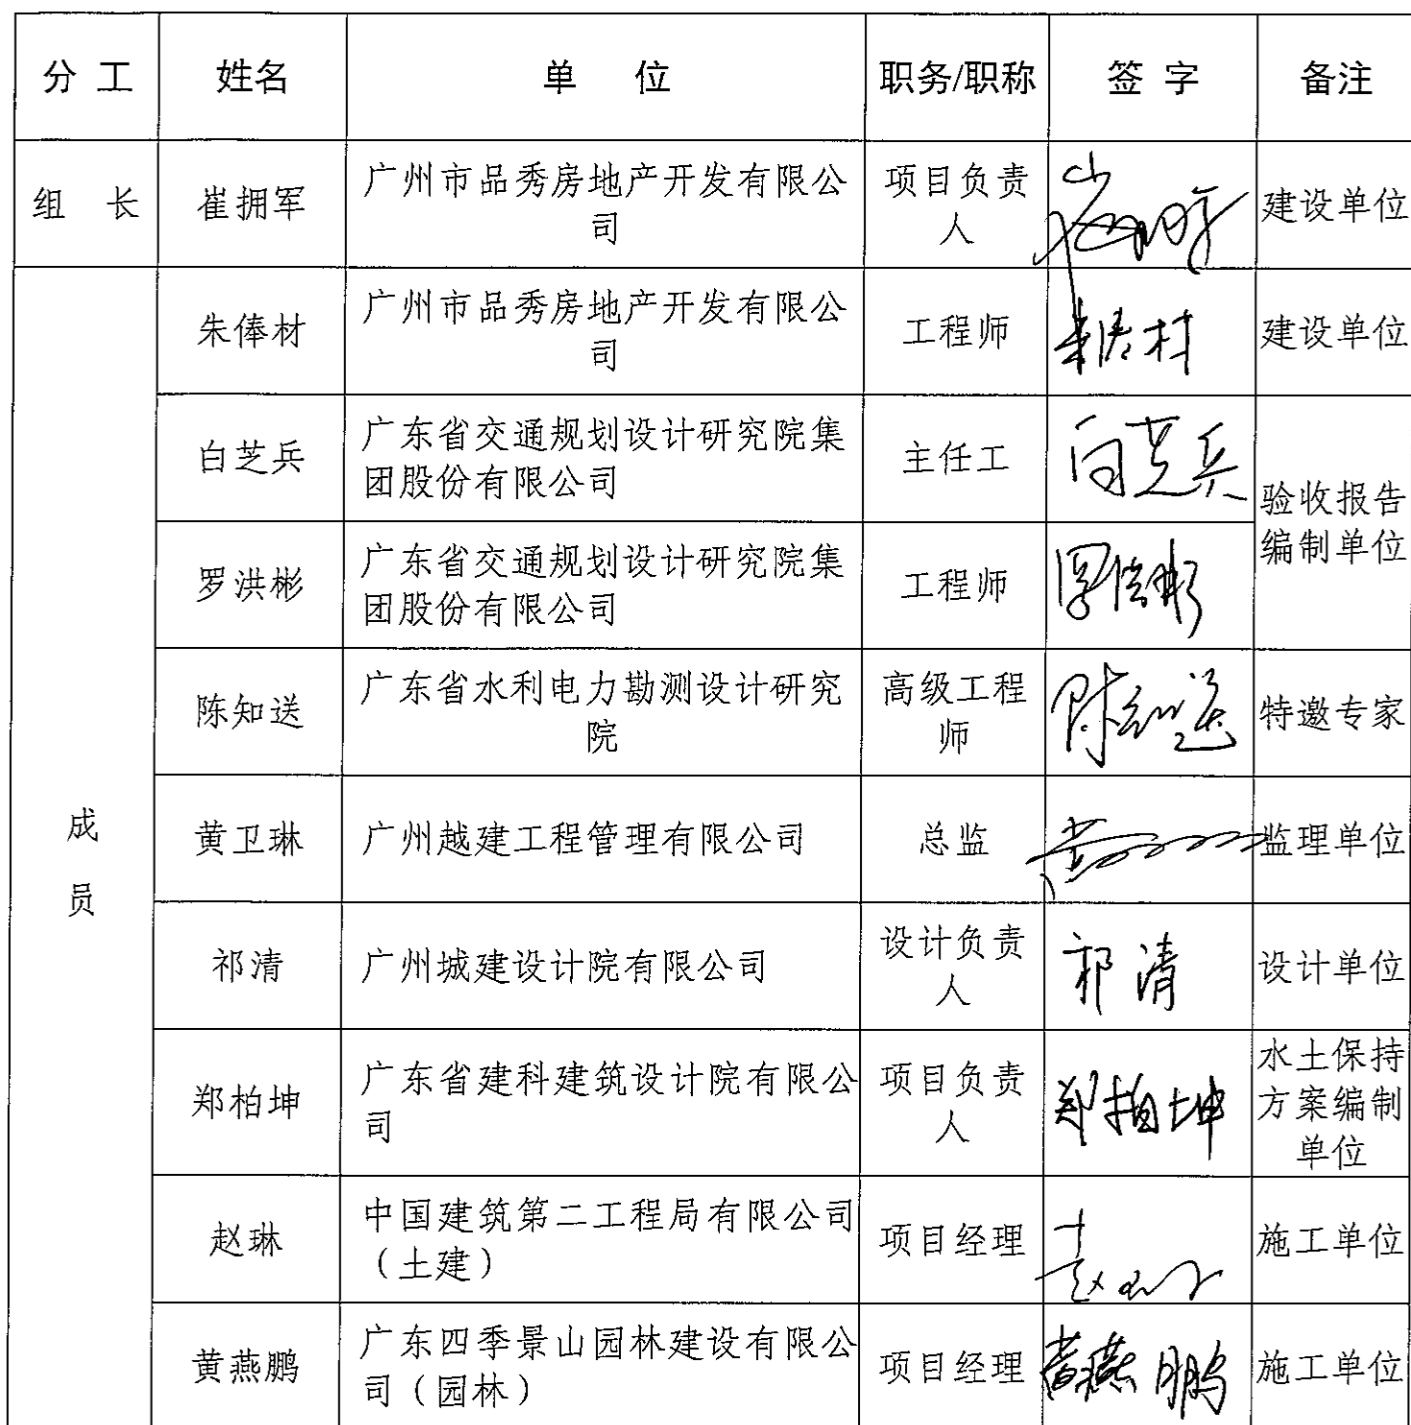 分 工 姓名 单 位 职务/职称 签 字 备注
组 长 崔拥军 广州市品秀房地产开发有限公 项目负责 建设单位
司 人
朱俸材 广州市品秀房地产开发有限公 工程师 朱俸材 建设单位
司
白芝兵 广东省交通规划设计研究院集 主任工 白芝兵 验收报告
团股份有限公司 编制单位
罗洪彬 广东省交通规划设计研究院集 工程师 罗洪彬
团股份有限公司
陈知送 广东省水利电力勘测设计研究 高级工程 陈知送 特邀专家
院 师
成 黄卫琳 广州越建工程管理有限公司 总监 监理单位
员
祁清 广州城建设计院有限公司 设计负责 祁清 设计单位
人
郑柏坤 广东省建科建筑设计院有限公 项目负责 郑柏坤 水土保持
司 人 方案编制
单位
赵琳 中国建筑第二工程局有限公司 项目经理 赵琳 施工单位
（土建）
黄燕鹏 广东四季景山园林建设有限公 项目经理 黄燕鹏 施工单位
司（园林）